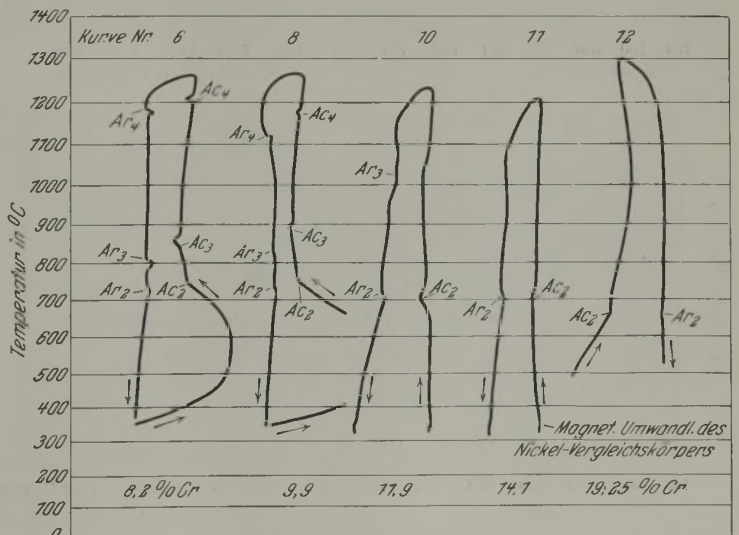 1400
Kurve Nr. 6 8 10 11 12
1300
1200
1100
1000
900
800
700
600
500
400
300
200
100
0
Temperatur in °C
Ac4
Ar4
Ar3
Ac3
Ar2
Ac2
Ac4
Ar4
Ar3
Ac3
Ar2
Ac2
Ar3
Ar2
Ac2
Ar2
Ac2
Ac2
Ar2
Magnet. Umwandl. des
Nickel-Vergleichskörpers
8,2 % Cr 9,9 11,9 14,1 19,25 % Cr